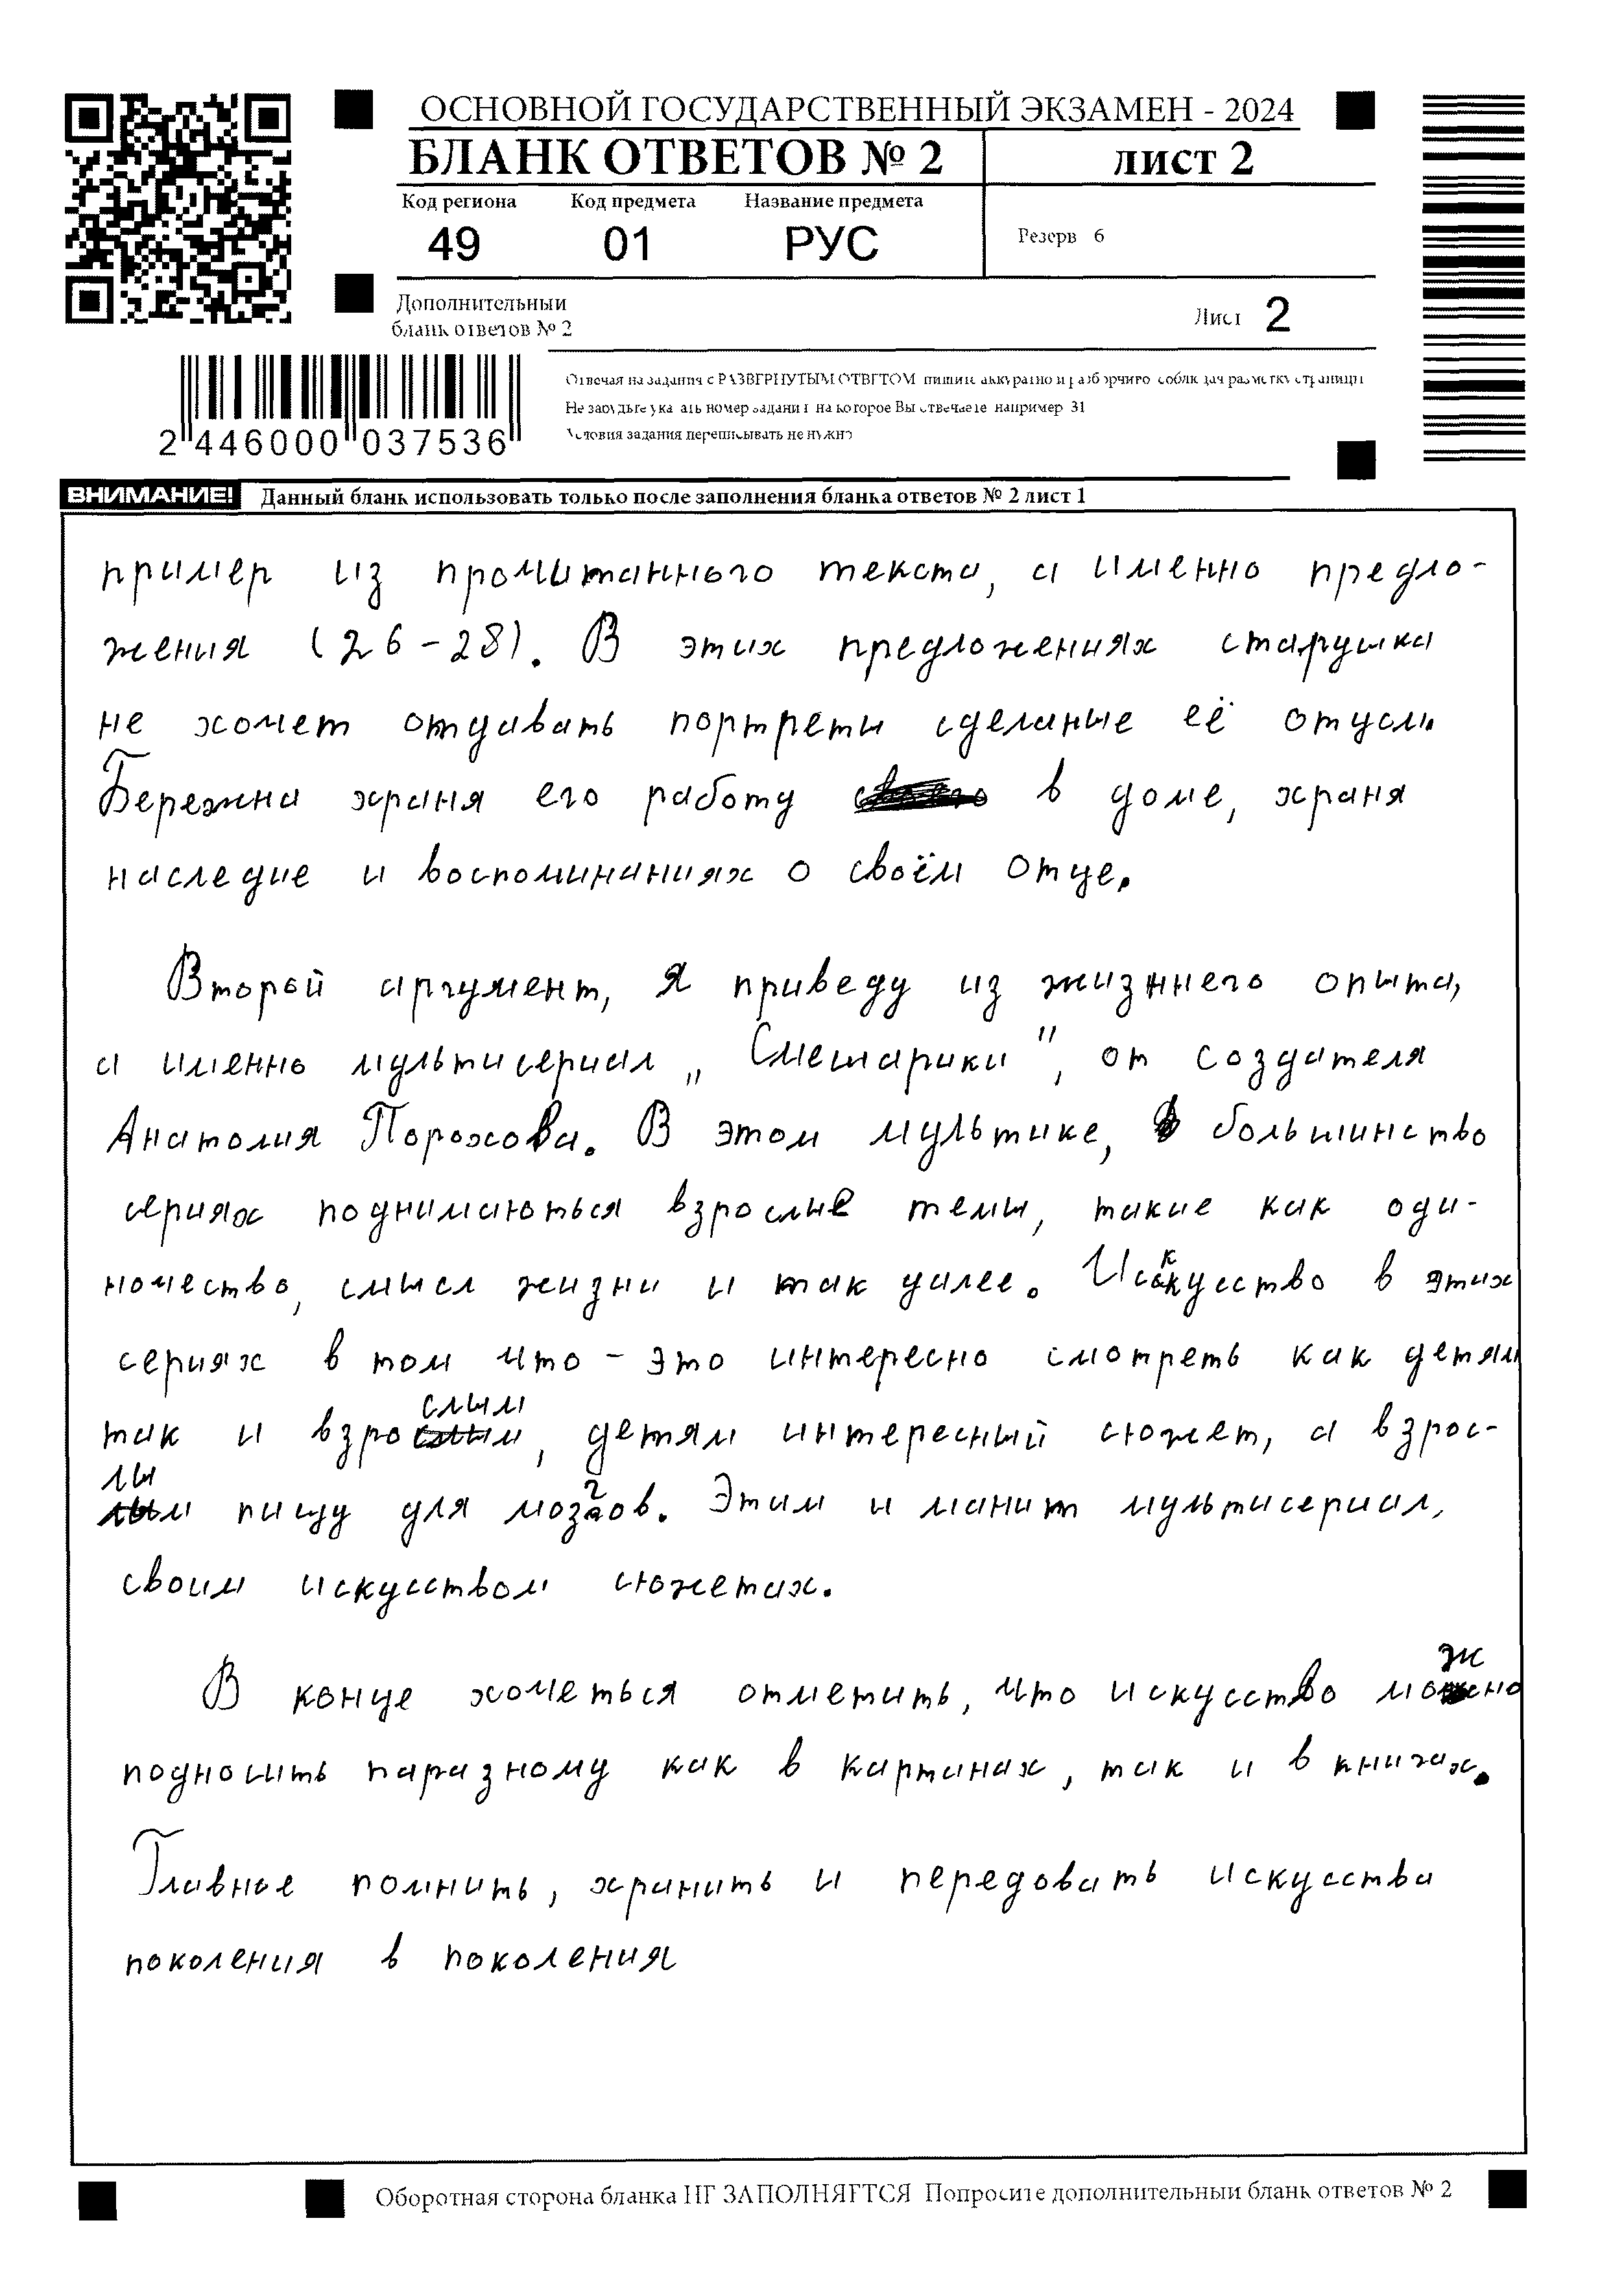 ОСНОВНОЙ ГОСУДАРСТВЕННЫЙ ЭКЗАМЕН - 2024
БЛАНК ОТВЕТОВ № 2
лист 2
Код региона Код предмета Название предмета
49 01 РУС
Резерв 6
Дополнительный
бланк ответов № 2
Лист 2
Отвечая на задания с РАЗВЕРНУТЫМ ОТВЕТОМ пишите аккуратно и разборчиво соблюдая разметку страницы
Не забудьте указать номер задания на которое Вы отвечаете например 31
Условия задания переписывать не нужно
2 446000 037536
ВНИМАНИЕ! Данный бланк использовать только после заполнения бланка ответов № 2 лист 1
пример из прочитанного текста, а именно предло-
жения (26-28). В этих предложениях старушка
не хочет отдавать портреты сделаные её отцом.
Бережна храня его работу в доме, храня
наследие и воспоминаниях о своём отце.
Второй аргумент, я приведу из жизннего опыта,
а именно мультисериал „Смешарики", от создателя
Анатолия Порохова. В этом мультике, в большинство
сериях поднимаються взрослые темы, такие как оди-
ночество, смысл жизни и так далее. Искусство в этих
сериях в том что - это интересно смотреть как детям
так и взрослым, детям интересный сюжет, а взрос-
лым пищу для мозгов. Этим и манит мультисериал,
своим искусством сюжетах.
В конце хочеться отметить, что искусство можно
подносить паразному как в картинах, так и в книгах.
Главное помнить, хранить и передовать искусства
поколения в поколения
Оборотная сторона бланка НЕ ЗАПОЛНЯЕТСЯ Попросите дополнительный бланк ответов № 2